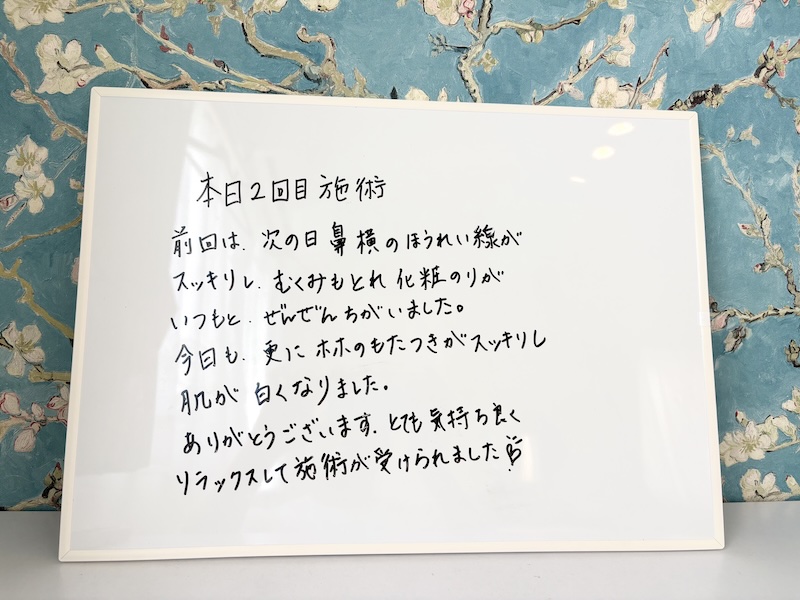 本日2回目施術
前回は、次の日鼻横のほうれい線が
スッキリし、むくみもとれ化粧のりが
いつもと、ぜんぜんちがいました。
今日も、更にホホのもたつきがスッキリし
肌が白くなりました。
ありがとうございます、とても気持ち良く
リラックスして施術が受けられました